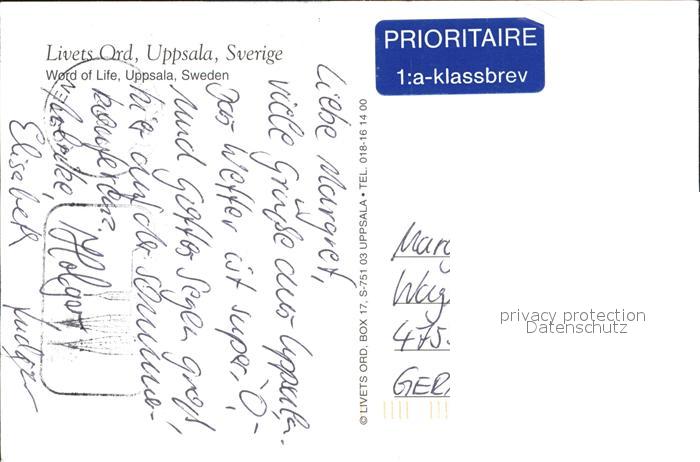 Livets Ord, Uppsala, Sverige
Word of Life, Uppsala, Sweden
PRIORITAIRE
1:a-klassbrev
Liebe Margret,
viele Grüße aus Uppsala.
Das Wetter ist super, Ö-
und Gottes Segen groß,
hier auf der
Elisabeth
Holger
Ludger
© LIVETS ORD, BOX 17, S-751 03 UPPSALA • TEL. 018-16 14 00
Marg
Wag
475.
GER
privacy protection
Datenschutz